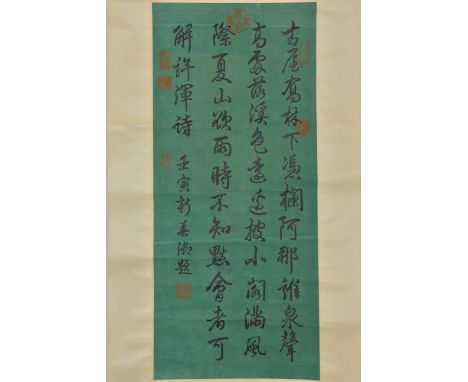 古屋高林下憑欄阿那誰泉聲
高處落溪色遠邊披小閣滿風
際夏山欲雨時不知默會者可
解許渾詩
壬寅新春御題